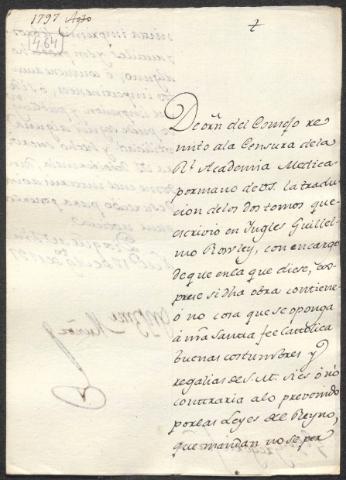 1797 Agto
464
De orn. del Consejo re
mito a la Censura de la
Rl. Academia Medica
por mano de VS. la traduc
cion de los dos tomos que
escrivio en Ingles Guillel
mo Rowley, con encargo
de que en la que diese, ex
prese si dha obra contiene
ó no cosa que se oponga
á nra Santa fee Catolica
buenas costumbres y
regalias de S.M. si es ó no
contraria a lo prevenido
por las Leyes de Reyno,
que mandan no se per